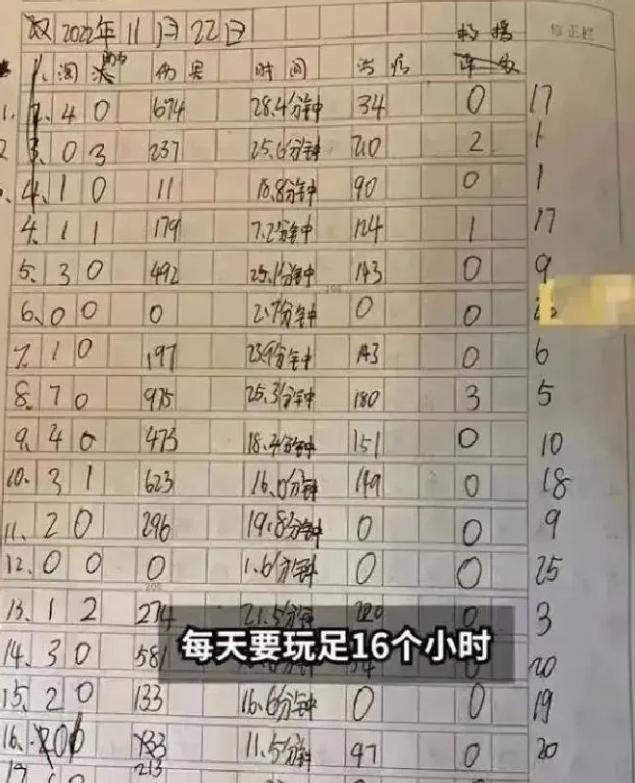 双 2022年11月22日
淘汰 伤害 时间 治疗
1. 4 0 674 28.4分钟 34 0 17
2. 0 3 237 25.6分钟 210 2 1
1 0 11 18.8分钟 90 0 1
4. 1 1 179 7.2分钟 124 1 17
5. 3 0 492 25.1分钟 143 0 9
6. 0 0 0 2.7分钟 0 0
7. 1 0 197 23.9分钟 143 0 6
8. 7 0 975 25.3分钟 180 3 5
9. 4 0 473 18.4分钟 151 0 10
10. 3 1 623 16.0分钟 149 0 18
11. 2 0 296 19.8分钟 0 0 9
12. 0 0 0 1.6分钟 0 0 25
13. 1 2 274 21.5分钟 220 0 3
每天要玩足16个小时
14. 3 0 581 0 20
15. 2 0 133 16.6分钟 0 0 19
16. 11.5分钟 97 0 20
213